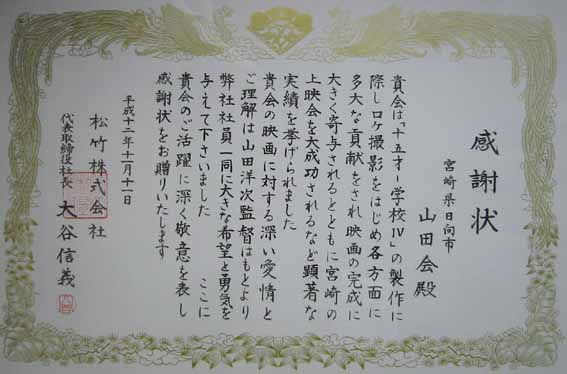 感謝状
宮崎県日向市
山田会殿
貴会は、「十五才ー学校Ⅳ」の製作に
際しロケ撮影をはじめ各方面に
多大な貢献をされ映画の完成に
大きく寄与されるとともに宮崎の
上映会を大成功されるなど顕著な
実績を挙げられました
貴会の映画に対する深い愛情と
ご理解は山田洋次監督はもとより
弊社社員一同に大きな希望と勇気を
与えて下さいました　ここに
貴会のご活躍に深く敬意を表し
感謝状をお贈りいたします
平成十二年十一月十一日
松竹株式会社
代表取締役社長　大谷信義